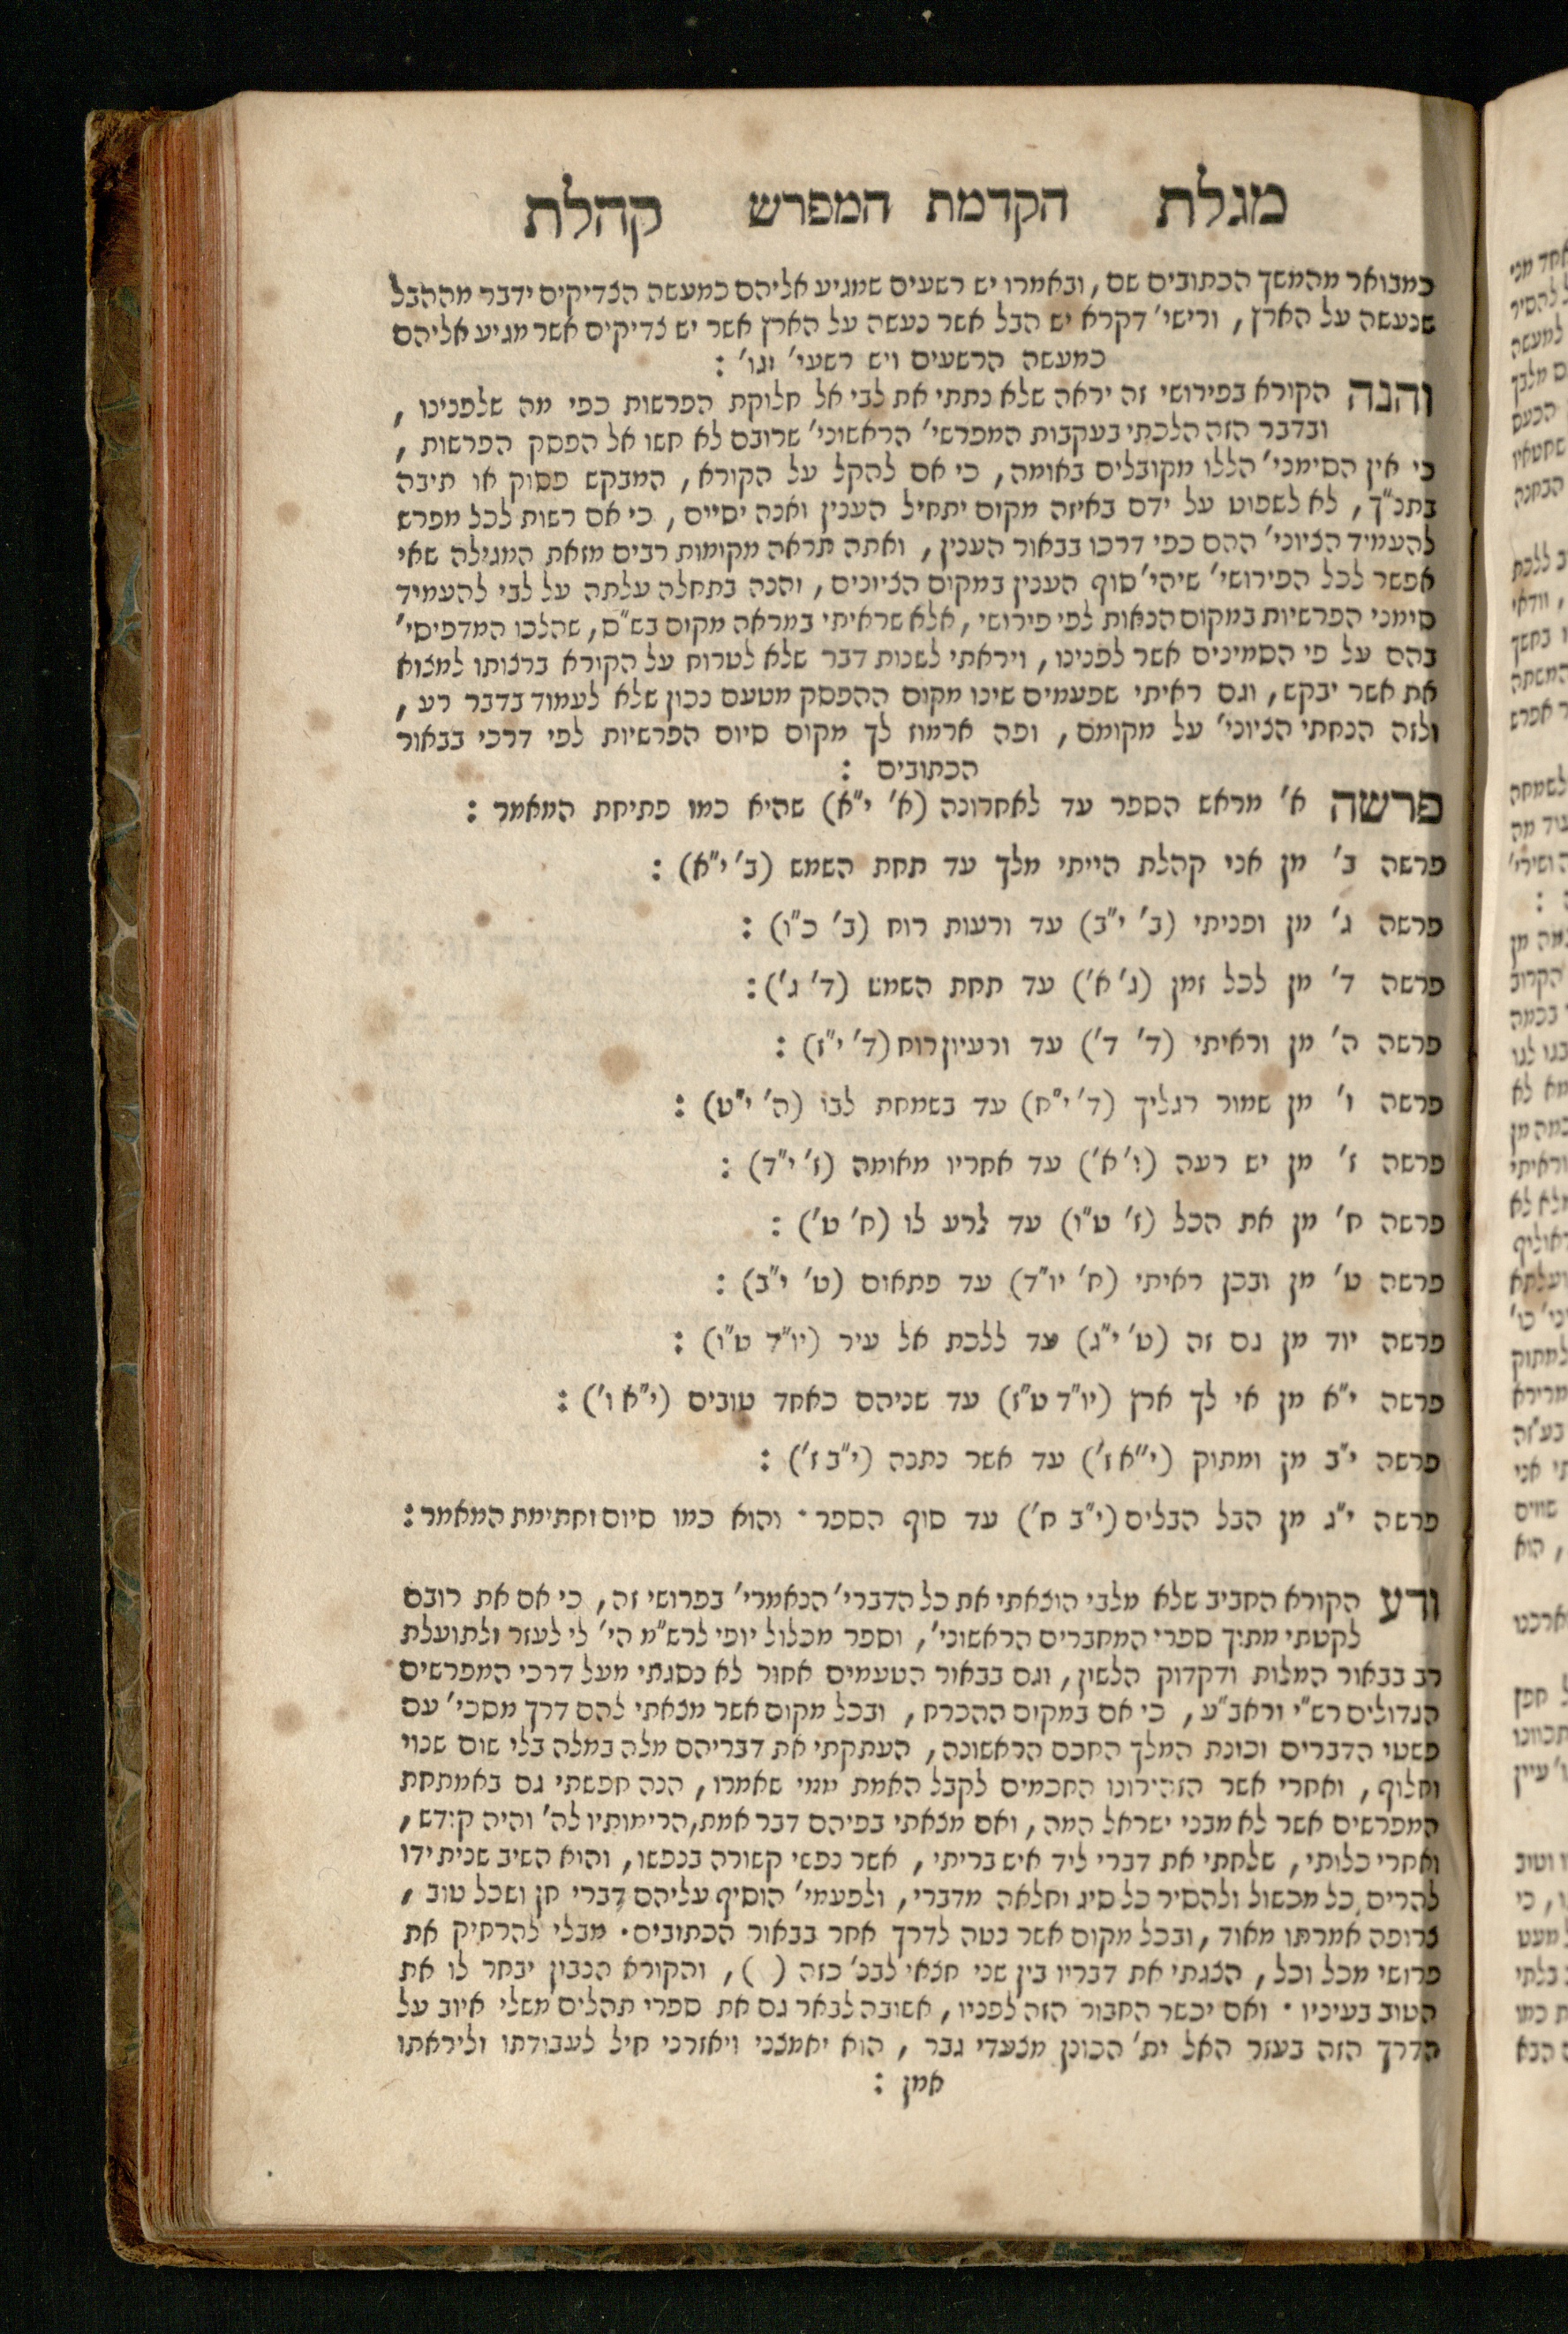 מגלת הקדמת המפרש קהלת
כמבואר מהמשך הכתובים שם, ובאמרו יש רשעים שמגיע אליהם כמעשה הצדיקים ידבר מההבל
שנעשה על הארץ, ורישי' דקרא יש הבל אשר נעשה על הארץ אשר יש צדיקים אשר מגיע אליהם
כמעשה הרשעים ויש רשעי' וגו' :
והנה הקורא בפירושי זה יראה שלא נתתי את לבי אל חלוקת הפרשות כפי מה שלפנינו,
ובדבר הזה הלכתי בעקבות המפרשי' הראשוני' שרובם לא חשו אל הפסק הפרשות,
כי אין הסימני' הללו מקובלים באומה, כי אם להקל על הקורא, המבקש פסוק או תיבה
בתנ"ך, לא לשפוט על ידם באיזה מקום יתחיל הענין ואנה יסיים, כי אם רשות לכל מפרש
להעמיד הציוני' ההם כפי דרכו בבאור הענין, ואתה תראה מקומות רבים מזאת המגילה שאי
אפשר לכל הפירושי' שיהי' סוף הענין במקום הציונים, והנה בתחלה עלתה על לבי להעמיד
סימני הפרשיות במקום הנאות לפי פירושי, אלא שראיתי במראה מקום בש"ס, שהלכו המדפיסי'
בהם על פי הסמינים אשר לפנינו, ויראתי לשנות דבר שלא לטרוח על הקורא ברצותו למצוא
את אשר יבקש, וגם ראיתי שפעמים שינו מקום ההפסק מטעם נכון שלא לעמוד בדבר רע,
ולזה הנחתי הציוני' על מקומם, ופה ארמוז לך מקום סיום הפרשיות לפי דרכי בבאור
הכתובים :
פרשה א' מראש הספר עד לאחרונה (א' י"א) שהיא כמו פתיחת המאמר :
פרשה ב' מן אני קהלת הייתי מלך עד תחת השמש (ב' י"א) :
פרשה ג' מן ופניתי (ב' י"ב) עד ורעות רוח (ב' כ"ו) :
פרשה ד' מן לכל זמן (ג' א') עד תחת השמש (ד' ג') :
פרשה ה' מן וראיתי (ד' ד') עד ורעיון רוח (ד' י"ז) :
פרשה ו' מן שמור רגליך (ד' י"ח) עד בשמחת לבו (ה' י"ט) :
פרשה ז' מן יש רעה (ו' א') עד אחריו מאומה (ז' י"ד) :
פרשה ח' מן את הכל (ז' ט"ו) עד לרע לו (ח' ט') :
פרשה ט' מן ובכן ראיתי (ח' יו"ד) עד פתאום (ט' י"ב) :
פרשה יוד מן גם זה (ט' י"ג) עד ללכת אל עיר (יו"ד ט"ו) :
פרשה י"א מן אי לך ארץ (יו"ד ט"ז) עד שניהם כאחד טובים (י"א ו') :
פרשה י"ב מן ומתוק (י"א ז') עד אשר נתנה (י"ב ז') :
פרשה י"ג מן הבל הבלים (י"ב ח') עד סוף הספר · והוא כמו סיום וחתימת המאמר :
ודע הקורא החביב שלא מלבי הוצאתי את כל הדברי' הנאמרי' בפרושי זה, כי אם את רובם
לקטתי מתוך ספרי המחברים הראשוני', וספר מכלול יופי לרש"מ הי' לי לעזר ולתועלת
רב בבאור המלות ודקדוק הלשון, וגם בבאור הטעמים אחור לא נסגתי מעל דרכי המפרשים
הגדולים רש"י וראב"ע, כי אם במקום ההכרח, ובכל מקום אשר מצאתי להם דרך מסכי' עם
פשטי הדברים וכונת המלך החכם הראשונה, העתקתי את דבריהם מלה במלה בלי שום שנוי
וחלוף, ואחרי אשר הזהירונו החכמים לקבל האמת ממי שאמרו, הנה חפשתי גם באמתחת
המפרשים אשר לא מבני ישראל המה, ואם מצאתי בפיהם דבר אמת, הרימותיו לה' והיה קודש,
ואחרי כלותי, שלחתי את דברי ליד איש בריתי, אשר נפשי קשורה בנפשו, והוא השיב שנית ידו
להרים כל מכשול ולהסיר כל סיג וחלאה מדברי, ולפעמי' הוסיף עליהם דברי חן ושכל טוב,
צרופה אמרתו מאוד, ובכל מקום אשר נטה לדרך אחר בבאור הכתובים · מבלי להרחיק את
פרושי מכל וכל, הצגתי את דבריו בין שני חצאי לבנ' כזה ( ), והקורא הנבון יבחר לו את
הטוב בעיניו · ואם יכשר החבור הזה לפניו, אשובה לבאר גם את ספרי תהלים משלי איוב על
הדרך הזה בעזר האל ית' הכונן מצעדי גבר, הוא יאמצני ויאזרני חיל לעבודתו וליראתו
אמן :